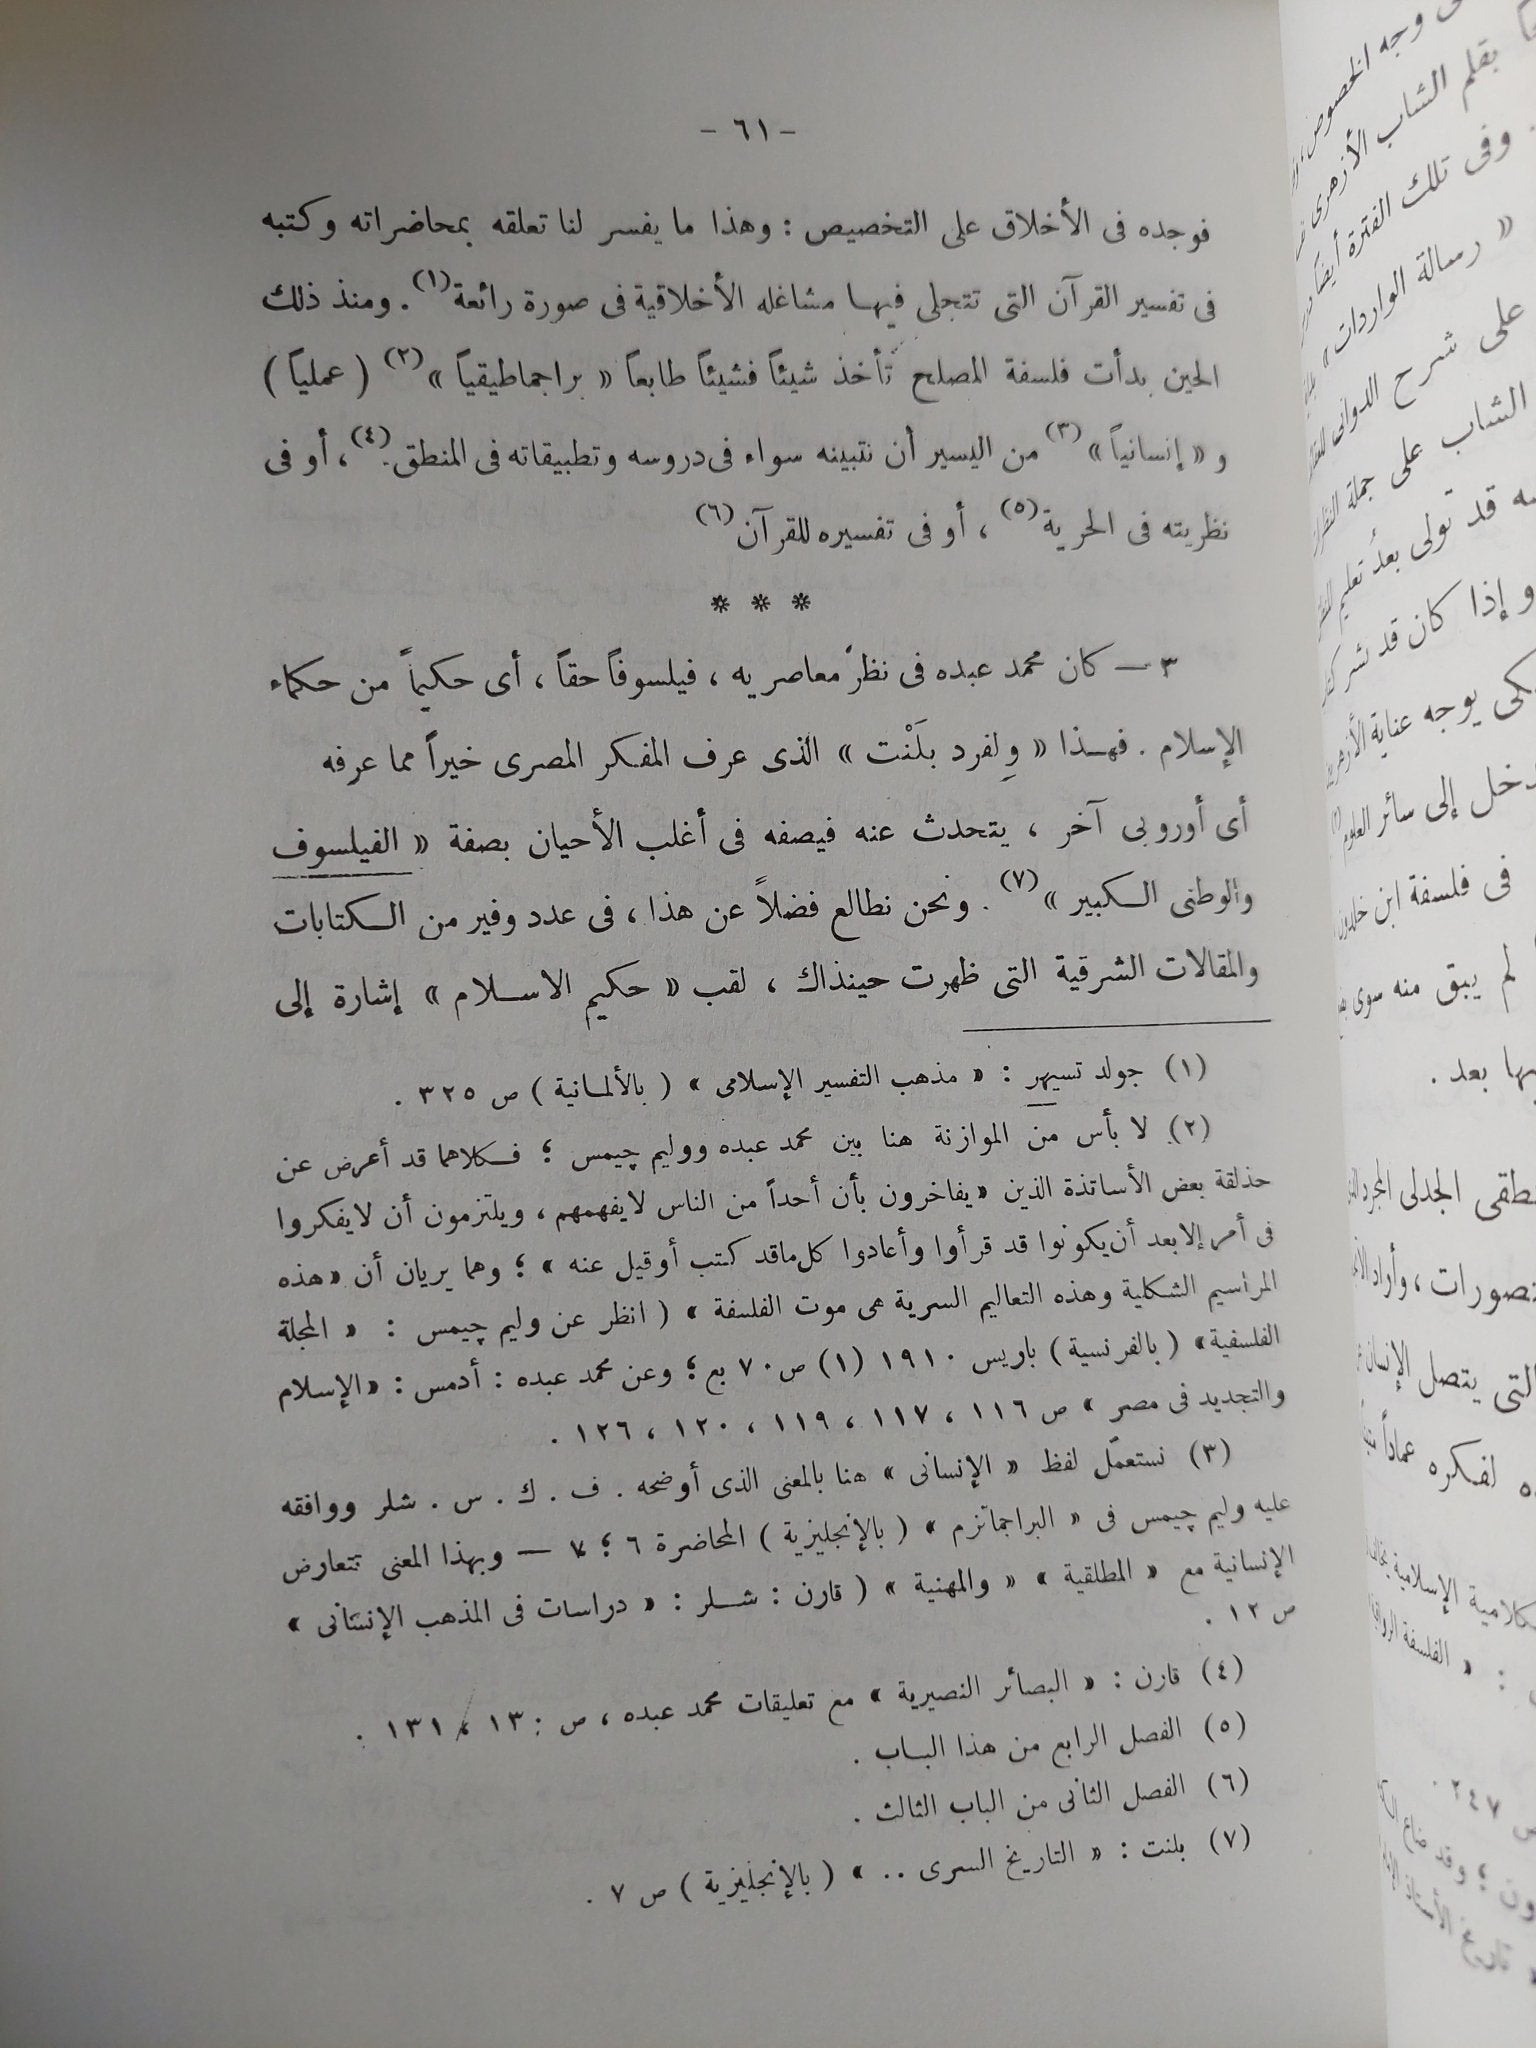 - ٦١ -
فوجده فى الأخلاق على التخصيص : وهذا ما يفسر لنا تعلقه بمحاضراته وكتبه
فى تفسير القرآن التى تتجلى فيها مشاغله الأخلاقية فى صورة رائعة(١) . ومنذ ذلك
الحين بدأت فلسفة المصلح تأخذ شيئاً فشيئاً طابعاً « براجماطيقياً »(٢) ( عملياً )
و « إنسانياً »(٣) من اليسير أن نتبينه سواء فى دروسه وتطبيقاته فى المنطق(٤) ، أو فى
نظريته فى الحرية(٥) ، أو فى تفسيره للقرآن(٦)
* * *
٣ — كان محمد عبده فى نظر معاصريه ، فيلسوفاً حقاً ، أى حكيماً من حكماء
الإسلام . فهذا « وِلفرد بلَنْت » الذى عرف المفكر المصرى خيراً مما عرفه
أى أوروبى آخر ، يتحدث عنه فيصفه فى أغلب الأحيان بصفة « الفيلسوف
والوطنى الكبير »(٧) . ونحن نطالع فضلاً عن هذا ، فى عدد وفير من الكتابات
والمقالات الشرقية التى ظهرت حينذاك ، لقب « حكيم الاسلام » إشارة إلى
(١) جولد تسيهر : « مذهب التفسير الإسلامى » ( بالألمانية ) ص ٣٢٥ .
(٢) لا بأس من الموازنة هنا بين محمد عبده ووليم چيمس ؛ فكلاهما قد أعرض عن
حذلقة بعض الأساتذة الذين « يفاخرون بأن أحداً من الناس لا يفهمهم ، ويلتزمون أن لا يفكروا
فى أمر إلا بعد أن يكونوا قد قرأوا وأعادوا كل ما قد كتب أو قيل عنه » ؛ وهما يريان أن « هذه
المراسيم الشكلية وهذه التعاليم السرية هى موت الفلسفة » ( انظر عن وليم چيمس : « المجلة
الفلسفية » ( بالفرنسية ) باريس ١٩١٠ (١) ص ٧٠ بع ؛ وعن محمد عبده : أدمس : « الإسلام
والتجديد فى مصر » ص ١١٦ ، ١١٧ ، ١١٩ ، ١٢٠ ، ١٢٦ .
(٣) نستعمل لفظ « الإنسانى » هنا بالمعنى الذى أوضحه . ف . ك . س . شلر ووافقه
عليه وليم چيمس فى « البراجماتزم » ( بالإنجليزية ) المحاضرة ٦ ؛ ٧ — وبهذا المعنى تتعارض
الإنسانية مع « المطلقية » « والمهنية » ( قارن : شلر : « دراسات فى المذهب الإنسانى »
ص ١٢ .
(٤) قارن : « البصائر النصيرية » مع تعليقات محمد عبده ، ص : ١٣ ، ١٣١ .
(٥) الفصل الرابع من هذا الباب .
(٦) الفصل الثانى من الباب الثالث .
(٧) بلنت : « التاريخ السرى .. » ( بالإنجليزية ) ص ٧ .
وجه الخصوص
بقلم الشاب الأزهرى
وفى تلك الفترة أيضاً
« رسالة الواردات »
على شرح الدوانى
الشاب على جملة
قد تولى بعدُ تعليم
وإذا كان قد نشر
يوجه عناية
إلى سائر العلوم
فى فلسفة ابن خلدون
لم يبق منه سوى
بعد .
الجدلى المجرد
التى يتصل الإنسان
لفكره عماداً
الإسلامية
: « الفلسفة
٢٤٧ .